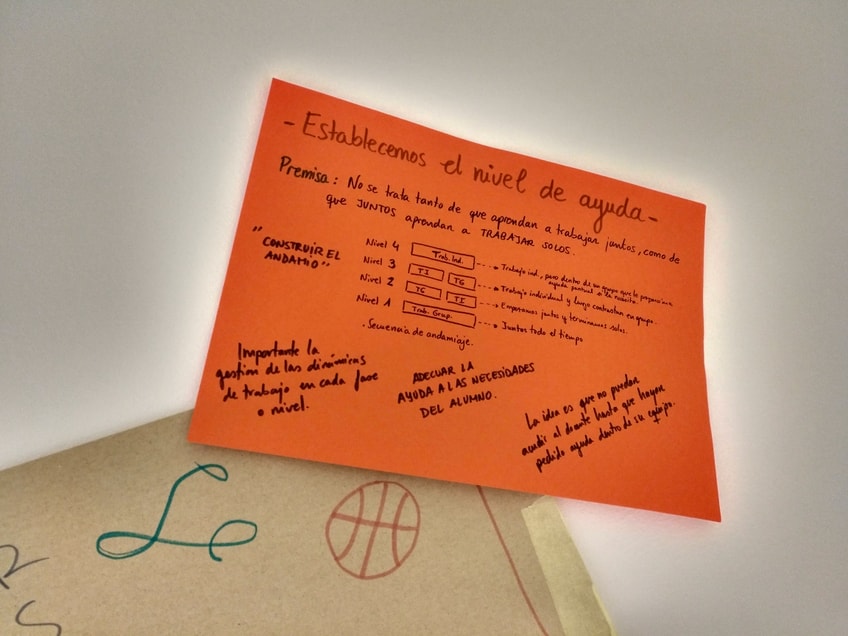 - Establecemos el nivel de ayuda -
Premisa: No se trata tanto de que aprendan a trabajar juntos, como de
que JUNTOS aprendan a TRABAJAR SOLOS.
"CONSTRUIR EL
ANDAMIO"
Nivel 4 Trab. Ind. Trabajo ind., pero dentro de un grupo que le proporciona
ayuda puntual si la necesita
Nivel 3 TI TG Trabajo individual y luego contrastan en grupo.
Nivel 2 TG TI Empezamos juntos y terminamos solos.
Nivel 1 Trab. Grup. Juntos todo el tiempo
- Secuencia de andamiaje.
Importante la
gestión de las dinámicas
de trabajo en cada fase
o nivel.
ADECUAR LA
AYUDA A LAS NECESIDADES
DEL ALUMNO.
La idea es que no puedan
acudir al docente hasta que hayan
pedido ayuda dentro de su equipo.